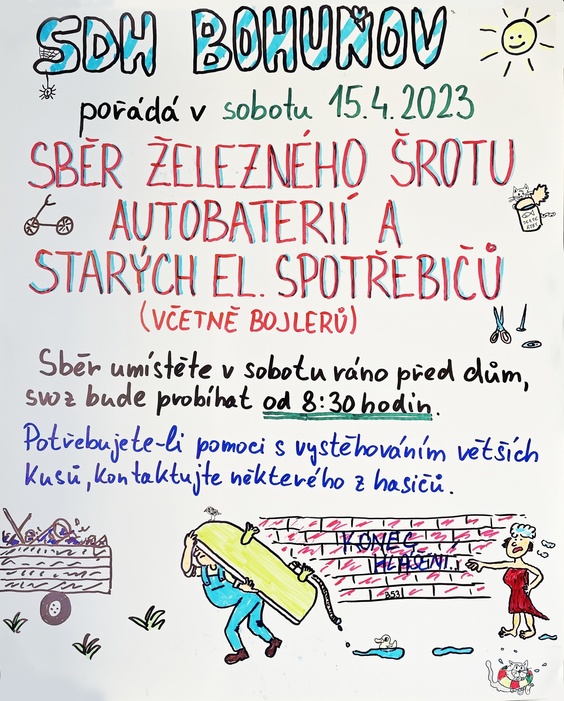 SDH BOHUŇOV
pořádá v sobotu 15.4.2023
SBĚR ŽELEZNÉHO ŠROTU
AUTOBATERIÍ A
STARÝCH EL. SPOTŘEBIČŮ
(VČETNĚ BOJLERŮ)
Sběr umístěte v sobotu ráno před dům,
svoz bude probíhat od 8:30 hodin.
Potřebujete-li pomoci s vystěhováním větších
kusů, kontaktujte některého z hasičů.
KONEC
HLÁŠENÍ...